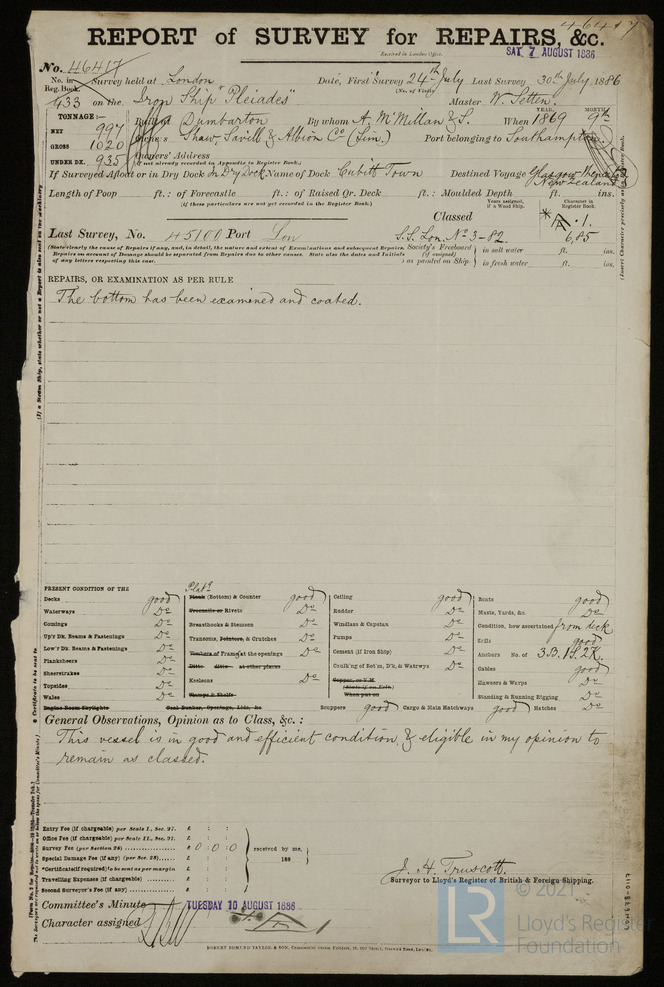 46417
REPORT of SURVEY for REPAIRS, &c.
Received in London Office. SAT. 7 AUGUST 1886
No. 46417
No. in Reg. Book. Survey held at London Date, First Survey 24th July Last Survey 30th July 1886
(No. of Visits)
933 on the Iron Ship "Pleiades" Master W. Setten.
TONNAGE:— Built at Dumbarton By whom A. McMillan & S. When 1869 9th
YEAR. MONTH.
NET 997
GROSS 1020 Owners Shaw, Savill & Albion Co (Lim.) Port belonging to Southampton
UNDER DK. 935 Owners' Address
(if not already recorded in Appendix to Register Book.)
If Surveyed Afloat or in Dry Dock In Dry Dock Name of Dock Cubitt Town Destined Voyage Glasgow thence to New Zealand
Length of Poop ft.: of Forecastle ft.: of Raised Qr. Deck ft.: Moulded Depth ft. ins.
(if these particulars are not yet recorded in the Register Book.)
Classed
Years assigned, if a Wood Ship.
Character in Register Book.
Last Survey, No. 45100 Port Lon S.S. Lon. No 3-82. 6,85
(State clearly the cause of Repairs if any, and, in detail, the nature and extent of Examinations and subsequent Repairs.
Repairs on account of Damage should be separated from Repairs due to other causes. State also the dates and Initials
of any letters respecting this case.
Society's Freeboard (if assigned) as painted on Ship in salt water ft. ins.
in fresh water ft. ins.
REPAIRS, OR EXAMINATION AS PER RULE
The bottom has been examined and coated.
PRESENT CONDITION OF THE
Decks good
Waterways Do
Comings Do
Up'r Dk. Beams & Fastenings Do
Low'r Dk. Beams & Fastenings Do
Planksheers Do
Sheerstrakes Do
Topsides Do
Wales Do
Engine Room Skylights
Plats
Plank (Bottom) & Counter good
Treenails or Rivets Do
Breasthooks & Stemson Do
Transoms, Pointers, & Crutches Do
Timbers of Frame at the openings Do
Ditto ditto at other places
Keelsons Do
Clamps & Shelfs
Coal Bunker, Openings, Lids, &c.
Ceiling good
Rudder Do
Windlass & Capstan Do
Pumps Do
Cement (if Iron Ship) Do
Caulk'ng of Bot'm, D'k, & Watrwys Do
Copper, or Y.M.
(State if on Felt)
When put on
Scuppers good Cargo & Main Hatchways good Hatches Do
Boats good
Masts, Yards, &c. Do
Condition, how ascertained from deck
Sails good
Anchors No. of 3B. 1S. 2K.
Cables good
Hawsers & Warps Do
Standing & Running Rigging Do
General Observations, Opinion as to Class, &c. :
This vessel is in good and efficient condition, & eligible in my opinion to
remain as classed.
Entry Fee (if chargeable) per Scale I., Sec. 27. £ : :
Office Fee (if chargeable) per Scale II., Sec. 27. £ : :
Survey Fee (per Section 28) £ 0 : 0 : 0
Special Damage Fee (if any) (per Sec. 28) £ : :
*Certificate (if required) to be sent as per margin £ : :
Travelling Expenses (if chargeable) £ : :
Second Surveyor's Fee (if any) £ : :
received by me,
188
J. H. Truscott.
Surveyor to Lloyd's Register of British & Foreign Shipping.
Committee's Minute TUESDAY 10 AUGUST 1886
Character assigned
© 2021
LR
Lloyd's Register
Foundation